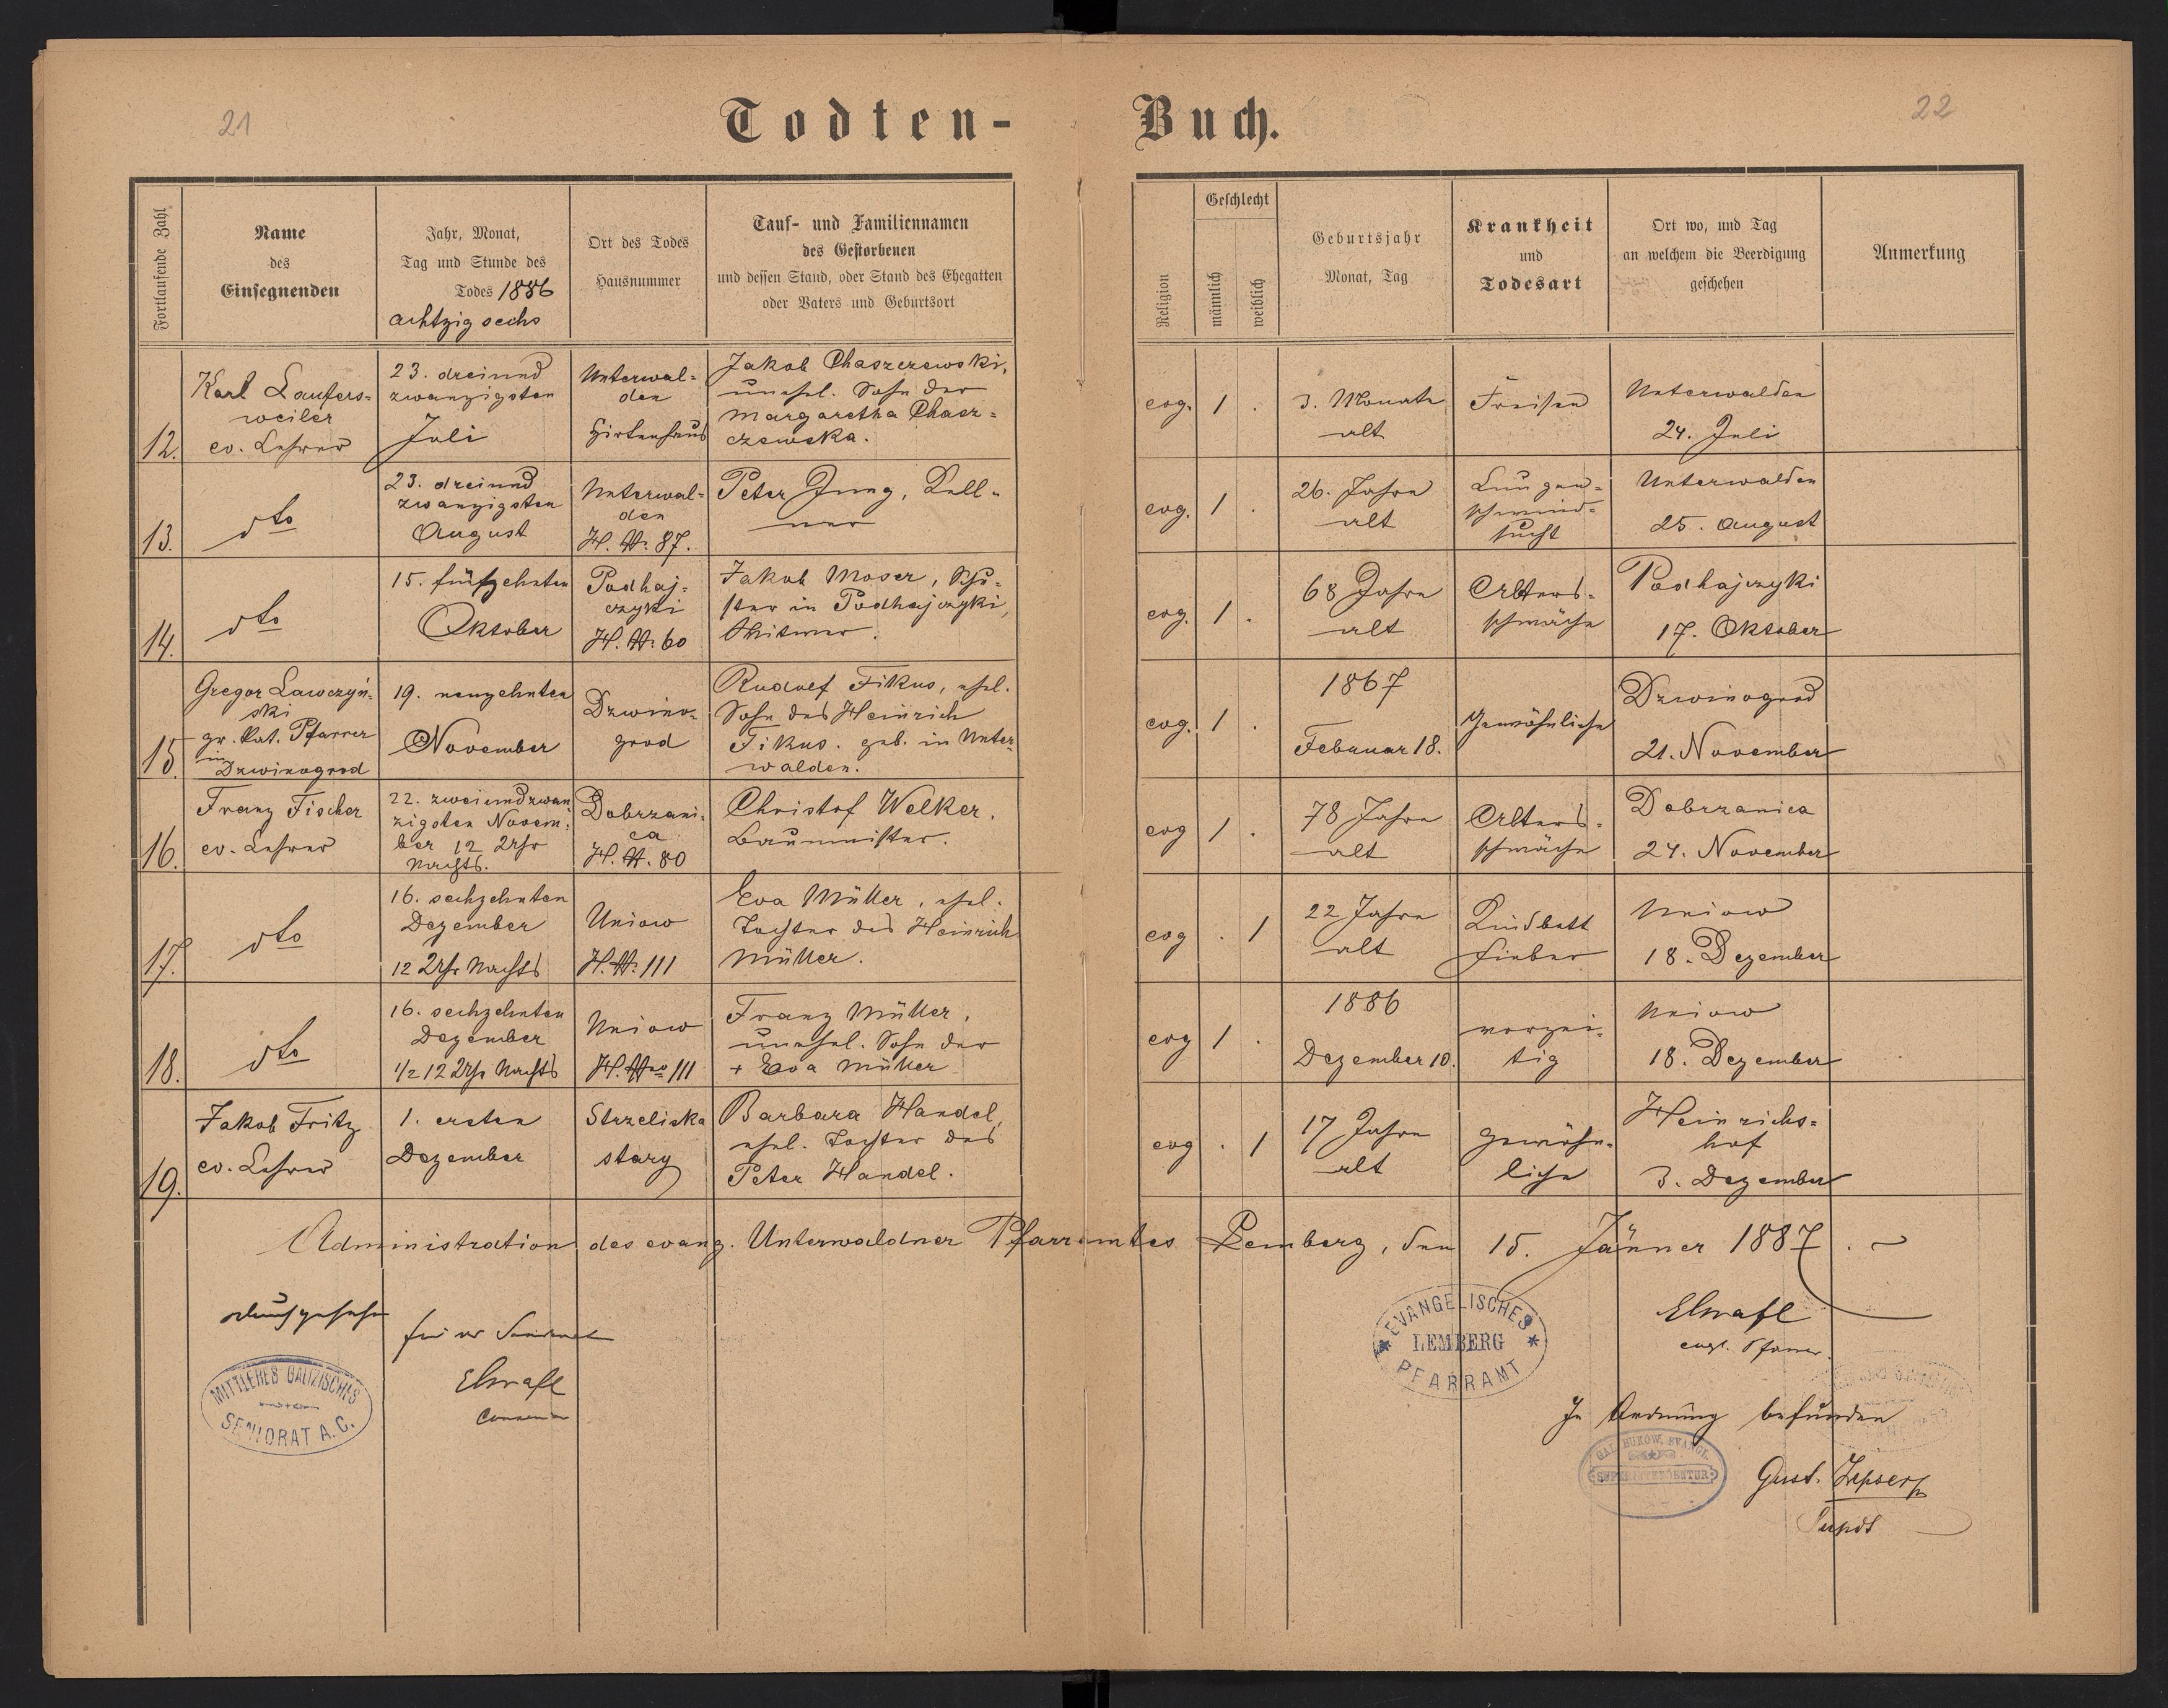 21
22
Todten-
Buch.
Fortlaufende Zahl
Name
des
Einsegnenden
Jahr, Monat,
Tag und Stunde des
Todes 1886
achtzig sechs
Ort des Todes
Hausnummer
Tauf- und Familiennamen
des Gestorbenen
und dessen Stand, oder Stand des Ehegatten
oder Vaters und Geburtsort
Religion
Geschlecht
männlich
weiblich
Geburtsjahr
Monat, Tag
Krankheit
und
Todesart
Ort wo, und Tag
an welchem die Beerdigung
geschehen
Anmerkung
12.
Karl Laufers-
weiler
ev. Lehrer
23. dreiund
zwanzigsten
Juli
Unterwal-
den
Hirtenhaus
Jakob Chaszczewski,
unehel. Sohn der
Margaretha Chasz-
czewska.
evg.
1 .
3. Monate
alt
Fraisen
Unterwalden
24. Juli
13.
dto
23. dreiund
zwanzigsten
August
Unterwal-
den
H. N. 87.
Peter Jung, Kell-
ner
evg.
1 .
26. Jahre
alt
Lungen-
schwind-
sucht
Unterwalden
25. August
14.
dto
15. fünfzehnten
Oktober
Podhaj-
czyki
H. N. 60
Jakob Moser, Schu-
ster in Podhajczyki,
Witwer.
evg.
1 .
68 Jahre
alt
Alters-
schwäche
Podhajczyki
17. Oktober
15.
Gregor Lawczyń-
ski
gr. kat. Pfarrer
in
Dzwinogrod
19. neunzehnten
November
Dzwino-
grod
Rudolf Fikus, ehel.
Sohn des Heinrich
Fikus. geb. in Unter-
walden.
evg.
1 .
1867
Februar 18.
Gewöhnliche
Dzwinogrod
21. November
16.
Franz Fischer
ev. Lehrer
22. zweiundzwan
zigsten Novem-
ber 12 Uhr
Nachts.
Dobrzani-
ca
H. N. 80
Christof Welker.
Baumeister.
evg
1 .
78 Jahre
alt
Alters-
schwäche
Dobrzanica
24. November
17.
dto
16. sechzehnten
Dezember
12 Uhr Nachts
Uniow
H. N. 111
Eva Müller, ehel.
Tochter des Heinrich
Müller.
evg
. 1
22 Jahre
alt
Kindbett
fieber
Uniow
18. Dezember
18.
dto
16. sechzehnten
Dezember
1/2 12 Uhr Nachts
Uniow
H. Nro 111
Franz Müller,
unehel. Sohn der
+ Eva Müller
evg
1 .
1886
Dezember 10.
vorzei-
tig
Uniow
18. Dezember
19.
Jakob Fritz
ev. Lehrer
1. ersten
Dezember
Strzeliska
stary
Barbara Handel,
ehel. Tochter des
Peter Handel.
evg
. 1
17 Jahre
alt
gewöhn-
liche
Heinrichs-
hof
3. Dezember
Administration des evang. Unterwaldner Pfarramtes Lemberg, den 15. Jänner 1887.
durchgesehen
für das Seniorat
MITTLERES GALIZISCHES
SENIORAT A.C.
EVANGELISCHES
LEMBERG
PFARRAMT
evgl. Pfarrer.
In Ordnung befunden
GAL. BUKOW. EVANGL.
SUPERINTENDENTUR
Gust.
Supdt